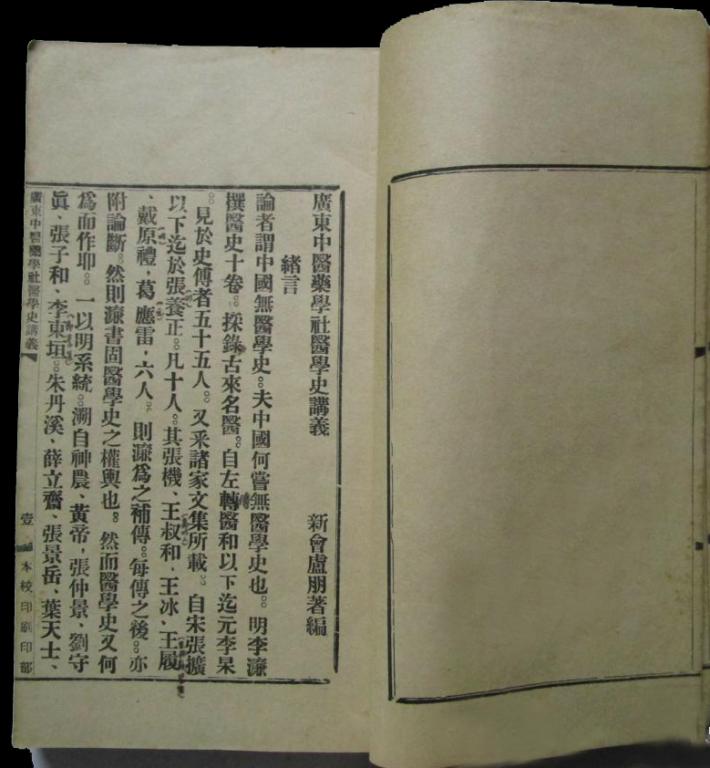 廣東中醫藥學社醫學史講義　新會盧朋著編
緒言
論者謂中國無醫學史。夫中國何嘗無醫學史也。明李濂
撰醫史十卷。採錄古來名醫。自左轉醫和以下迄元李杲
。見於史傳者五十五人。又釆諸家文集所載。自宋張擴
以下迄於張養正。凡十人。其張機、王叔和、王冰、王履
、戴原禮，葛應雷，六人。則濂爲之補傳。每傳之後。亦
附論斷。然則濂書固醫學史之權輿也。然而醫學史又何
爲而作耶。一以明系統。溯自神農、黃帝，張仲景、劉守
眞、張子和、李東垣。朱丹溪、薛立齋、張景岳、葉天士、
廣東中醫藥學社醫學史講義
壹　本校印刷印部